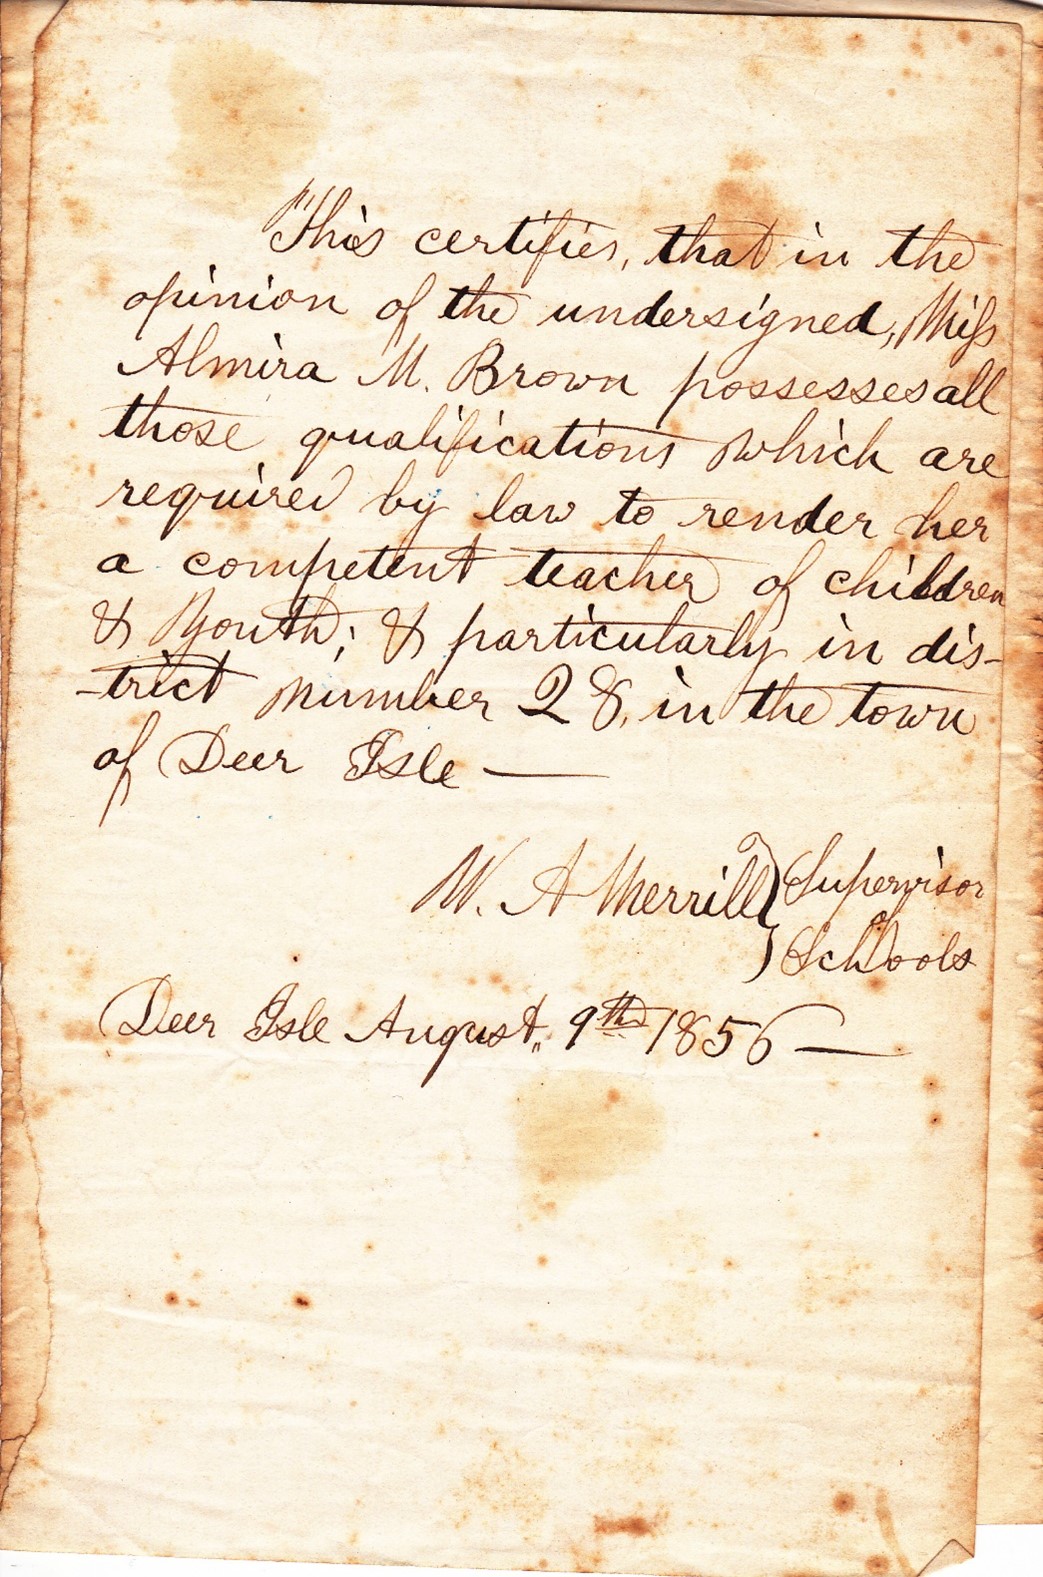 This certifies, that in the
opinion of the undersigned, Miss
Almira M. Brown possesses all
those qualifications which are
required by law to render her
a competent teacher of children
& Youth; & particularly in dis-
-trict number 28, in the town
of Deer Isle —
W. A Merrill } Supervisor
of
Schools
Deer Isle August, 9th 1856 —